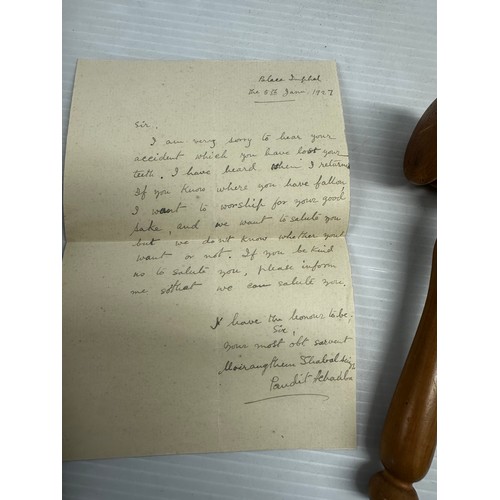 Palace Imphal
The 8th Jany. 1927
Sir,
I am very sorry to hear your
accident which you have lost your
teeth. I have heard when I returned
If you know where you have fallen
I want to worship for your good
sake, and we want to salute you
but we don't know whether you
want or not. If you be kind
as to salute you, please inform
me so that we can salute you.
I have the honour to be,
Sir,
Your most obt servant
Moirangthem
Pandit Achauba